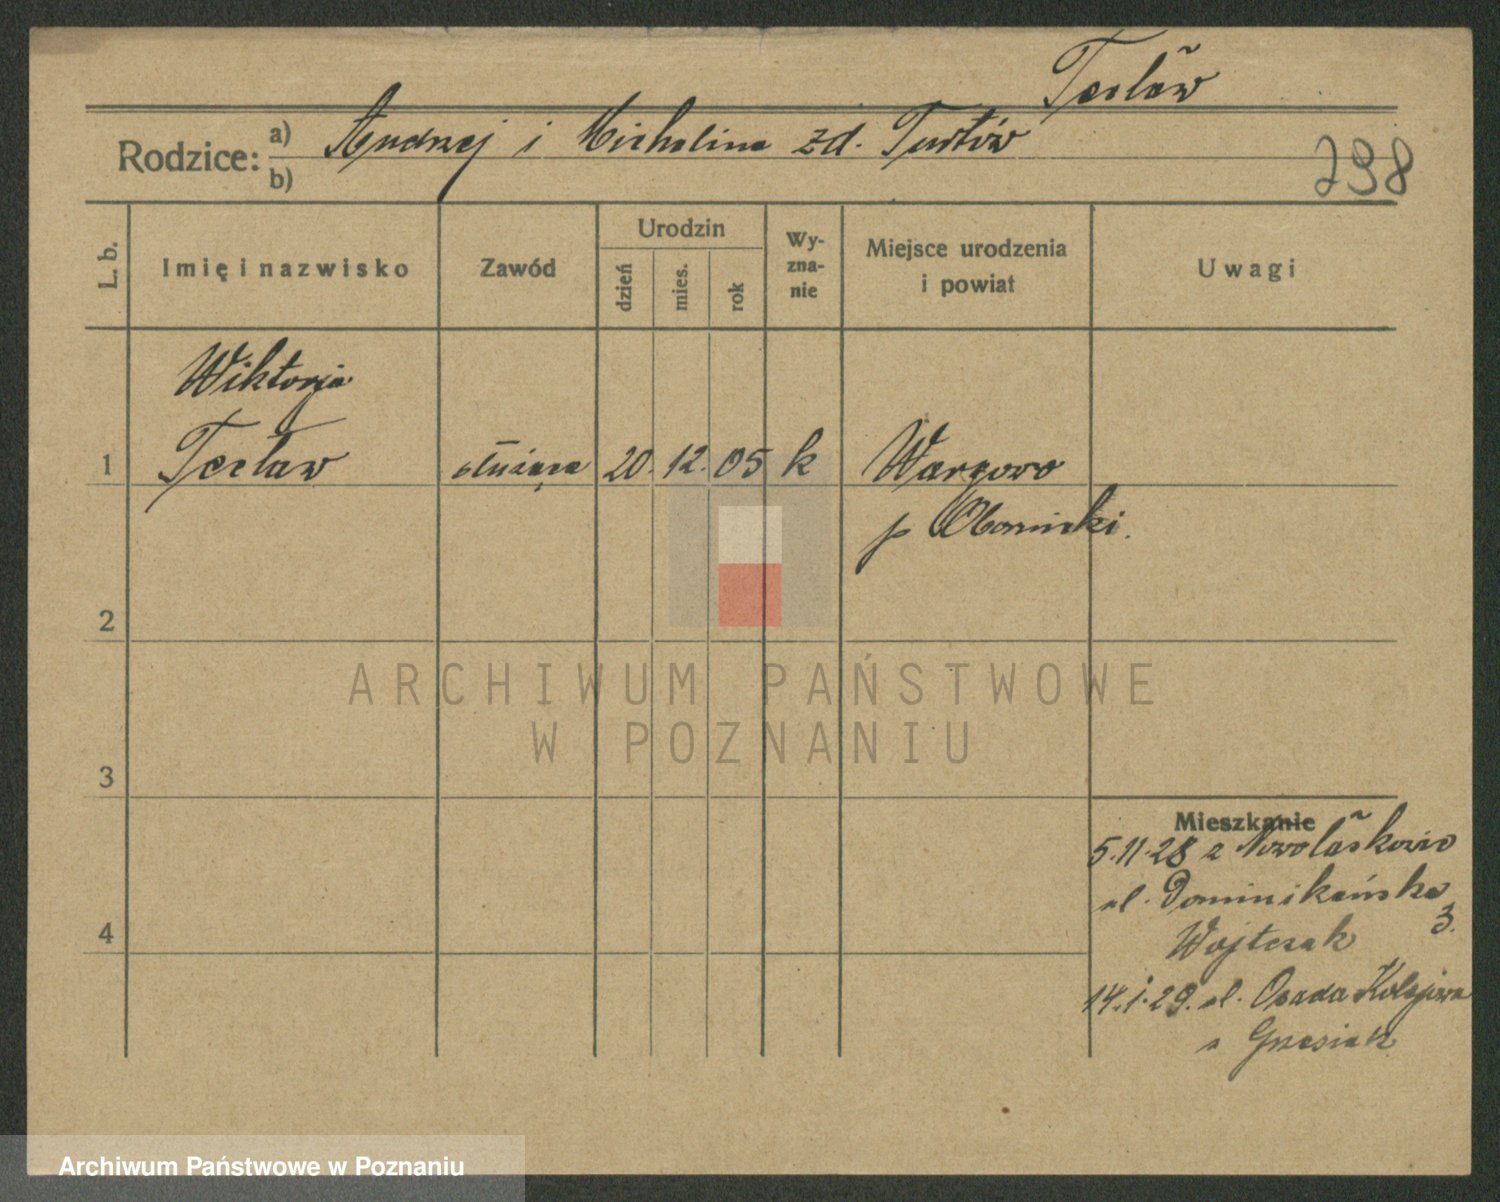 Tecław
Rodzice: a) Andrzej i Michalina zd.
b)
798
L. b.
Imię i nazwisko
Zawód
Urodzin
dzień
mies.
rok
Wy-
zna-
nie
Miejsce urodzenia
i powiat
Uwagi
Wiktorja
1 Tecław służąca 20. 12. 05 k Wargowo
p Obornicki.
2
3
4
Mieszkanie
5.11.28 z
ul. Dominikańska
3.
Wojtczak
14.1.29. ul. Osada Kolejowa
Grzesiak
ARCHIWUM PAŃSTWOWE
W POZNANIU
Archiwum Państwowe w Poznaniu